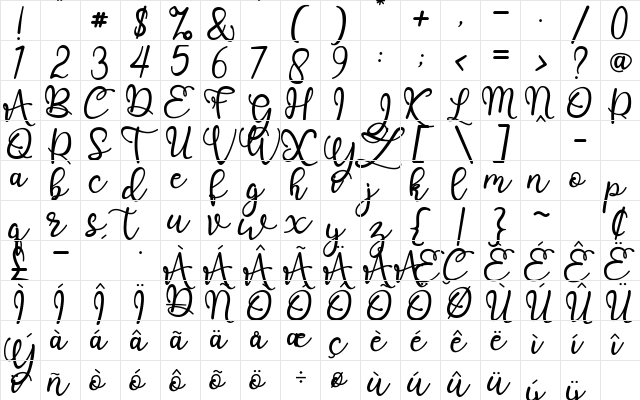 ! " # $ % & ( ) * + , - . / 0
1 2 3 4 5 6 7 8 9 : ; < = > ? @
A B C D E F G H I J K L M N O P
Q R S T U V W X Y Z [ \ ] ^ -
a b c d e f g h i j k l m n o p
q r s t u v w x y z { | } ~ ¢
£ - · À Á Â Ã Ä Å Æ Ç È É Ê Ë
Ì Í Î Ï Ð Ñ Ò Ó Ô Õ Ö Ø Ù Ú Û Ü
Ý à á â ã ä å æ ç è é ê ë ì í î
ï ñ ò ó ô õ ö ÷ ø ù ú û ü ý ÿ